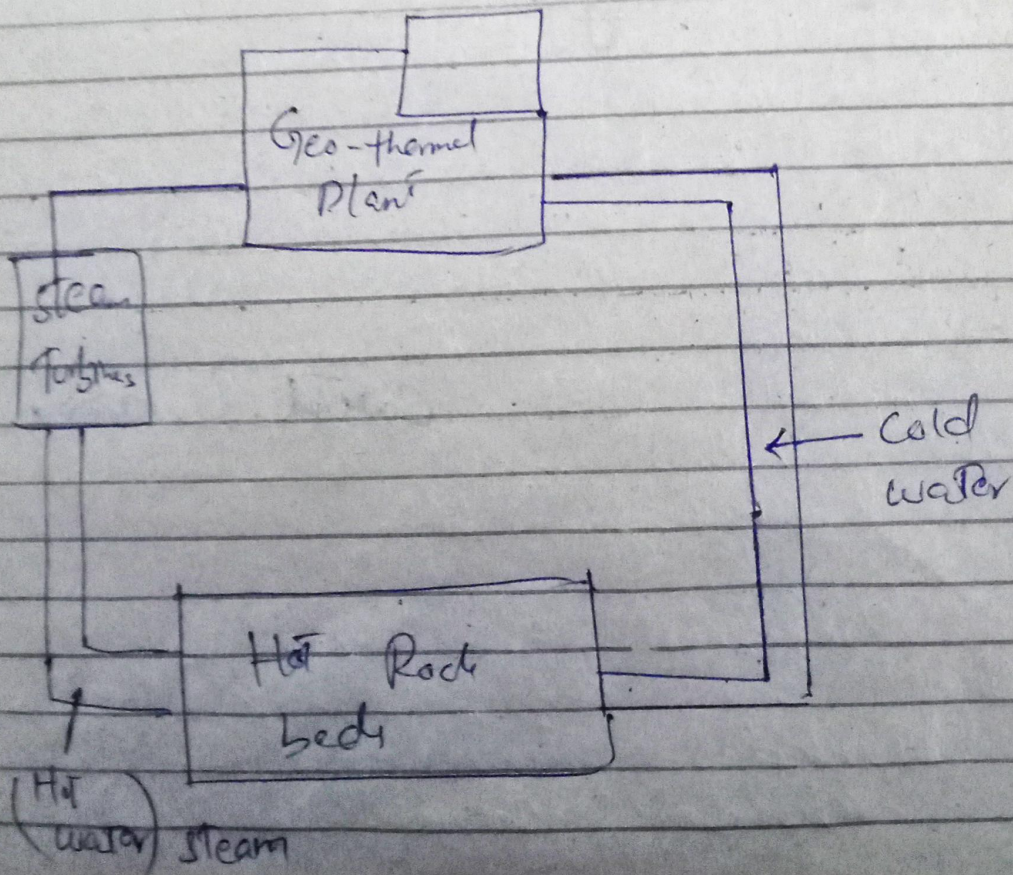 Geo-thermal
Plant
steam
Turbines
Cold
water
Hot Rock
beds
(Hot
water) steam